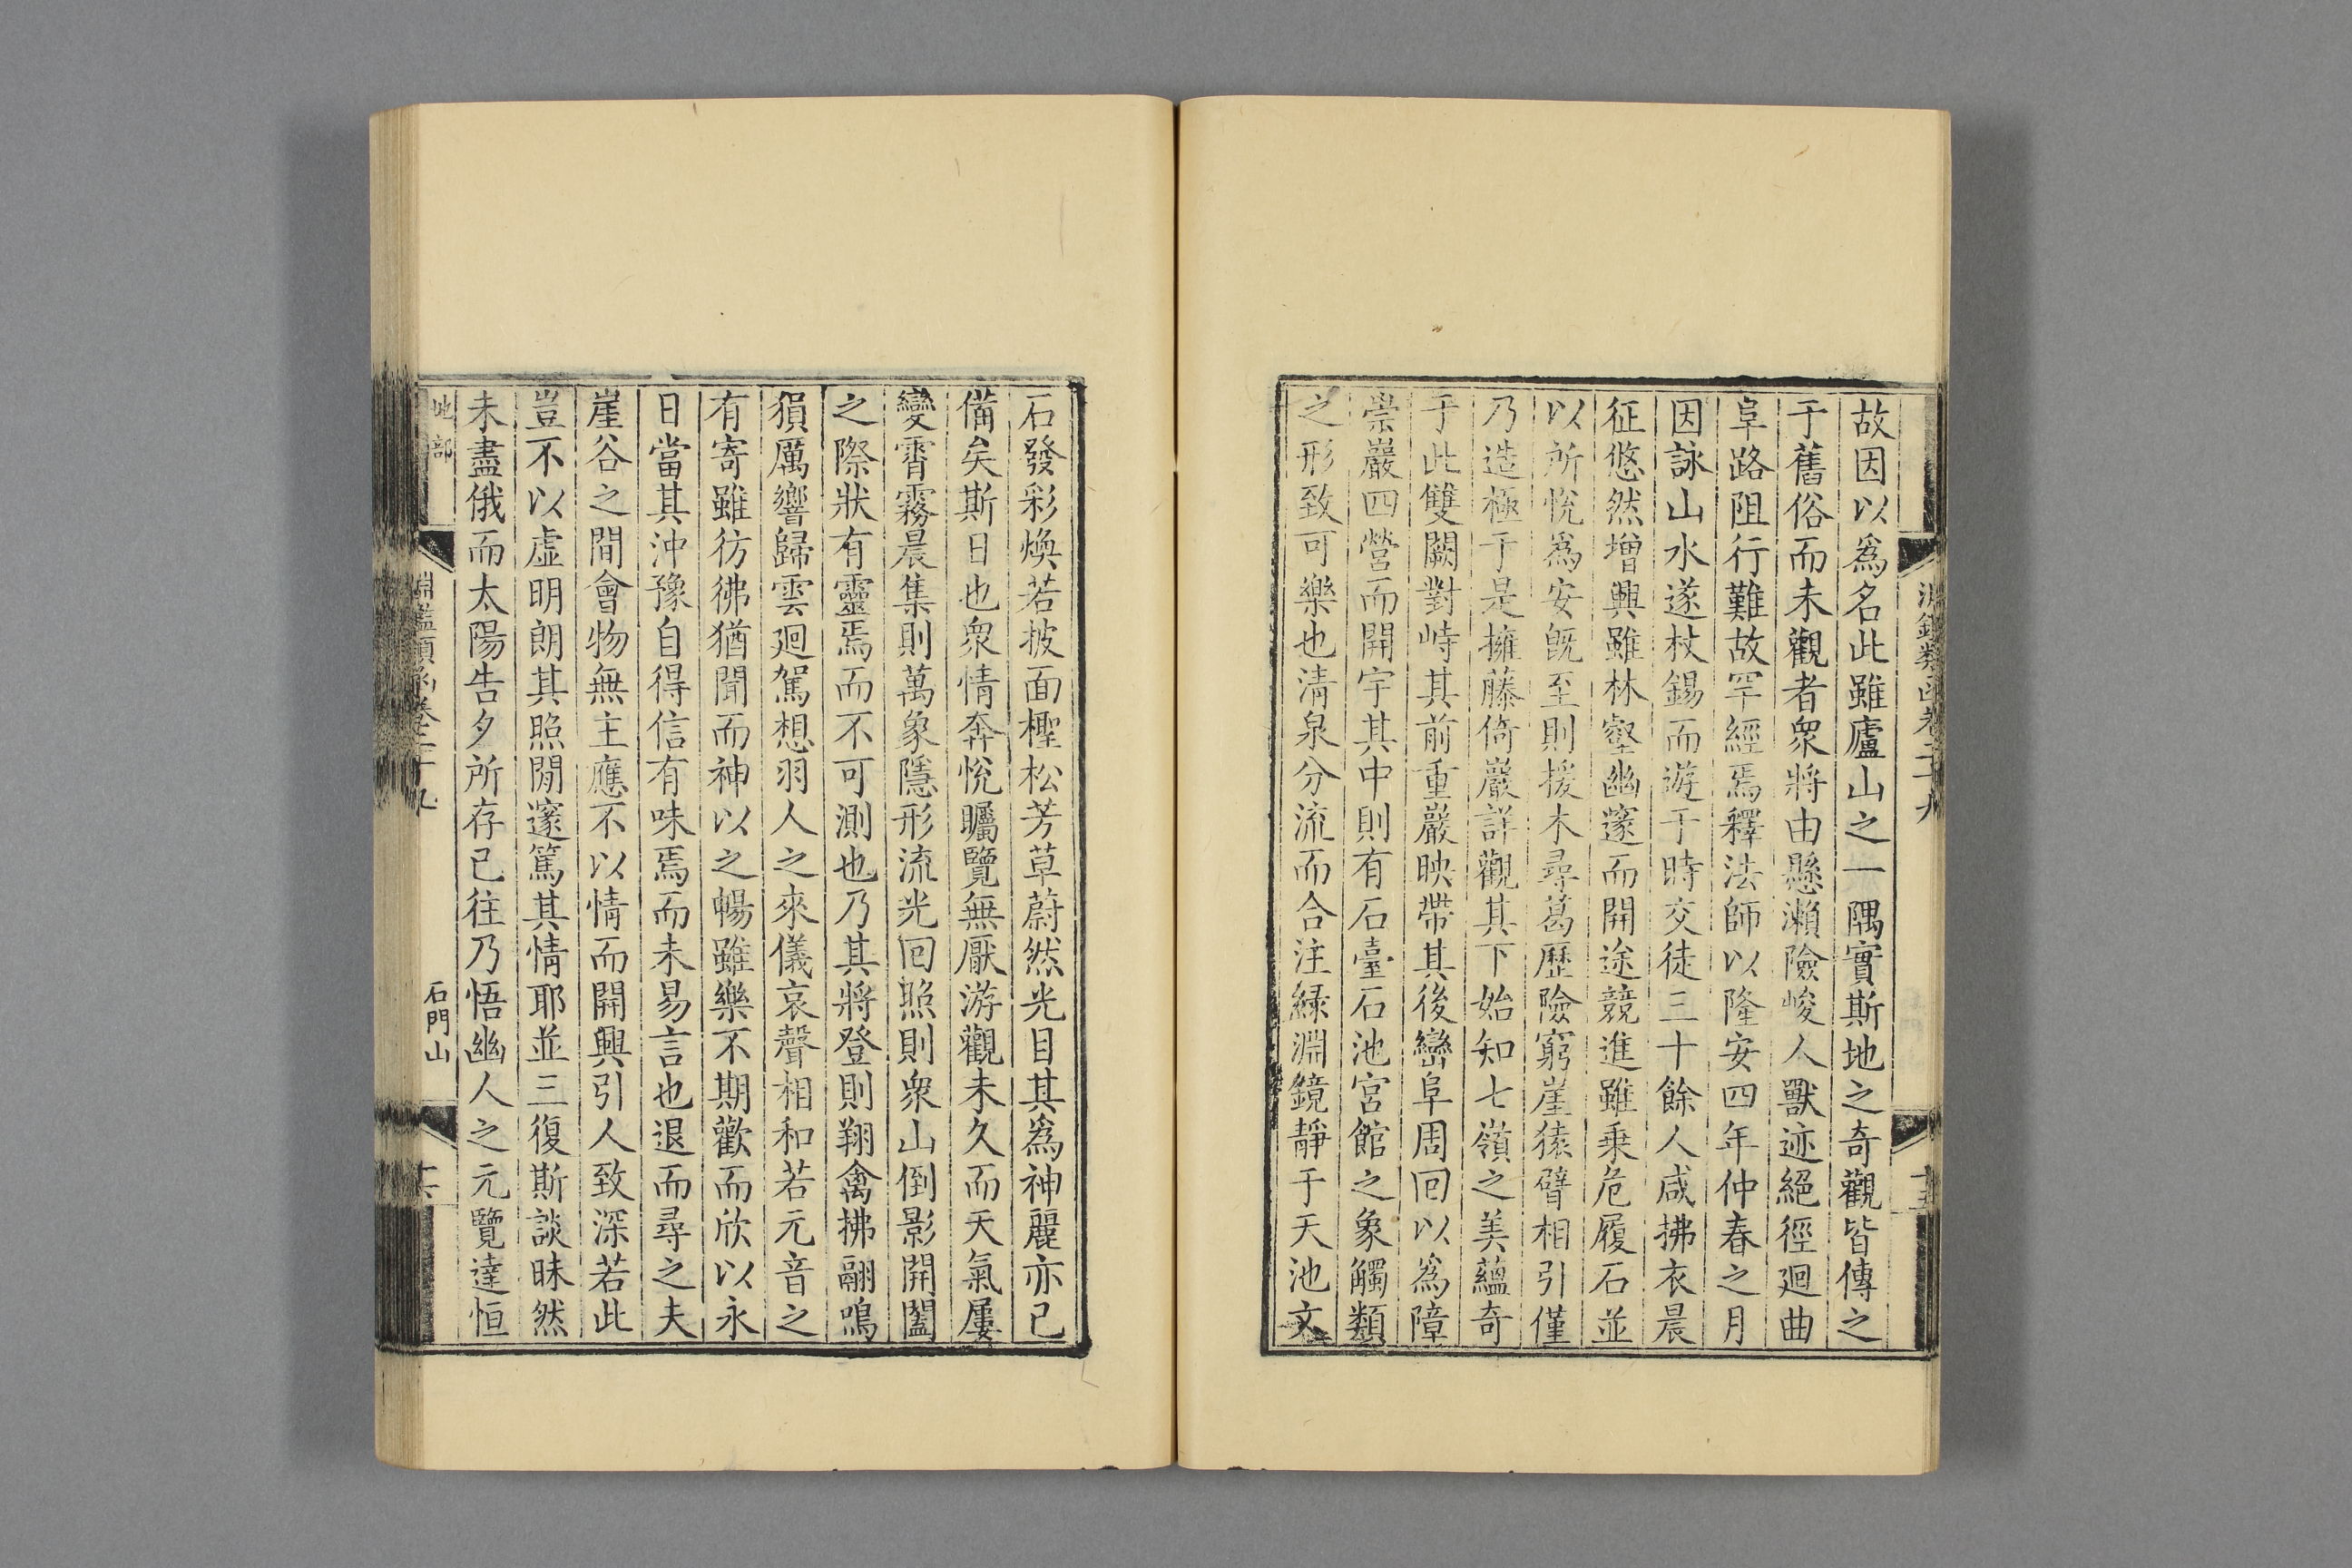 故因以為名此雖廬山之一隅實斯地之奇觀皆傳之
于舊俗而未觀者衆將由懸瀨險峻人獸迹絕徑廻曲
阜路阻行難故罕經焉釋法師以隆安四年仲春之月
因詠山水遂杖錫而遊于時交徒三十餘人咸拂衣晨
征悠然增興雖林壑幽邃而開途競進雖乗危履石並
以所悅為安旣至則援木尋葛歷險窮崖猿臂相引僅
乃造極于是擁藤倚巖詳觀其下始知七嶺之美蘊奇
于此雙闕對峙其前重巖映帶其後巒阜周回以為障
崇巖四營而開宇其中則有石臺石池宮館之象觸類
之形致可樂也清泉分流而合注綠淵鏡靜于天池文
石發彩煥若披面檉松芳草蔚然光目其為神麗亦已
備矣斯日也衆情奔悅矚覽無厭游觀未久而天氣屢
變霄霧晨集則萬象隱形流光回照則衆山倒影開闔
之際狀有靈焉而不可測也乃其將登則翔禽拂翮鳴
猿厲響歸雲廻駕想羽人之來儀哀聲相和若元音之
有寄雖彷彿猶聞而神以之暢雖樂不期歡而欣以永
日當其沖豫自得信有味焉而未易言也退而尋之夫
崖谷之間會物無主應不以情而開興引人致深若此
豈不以虛明朗其照閒邃篤其情耶並三復斯談昧然
未盡俄而太陽告夕所存已往乃悟幽人之元覽達恒
地部
淵鑑類函卷二十九
石門山